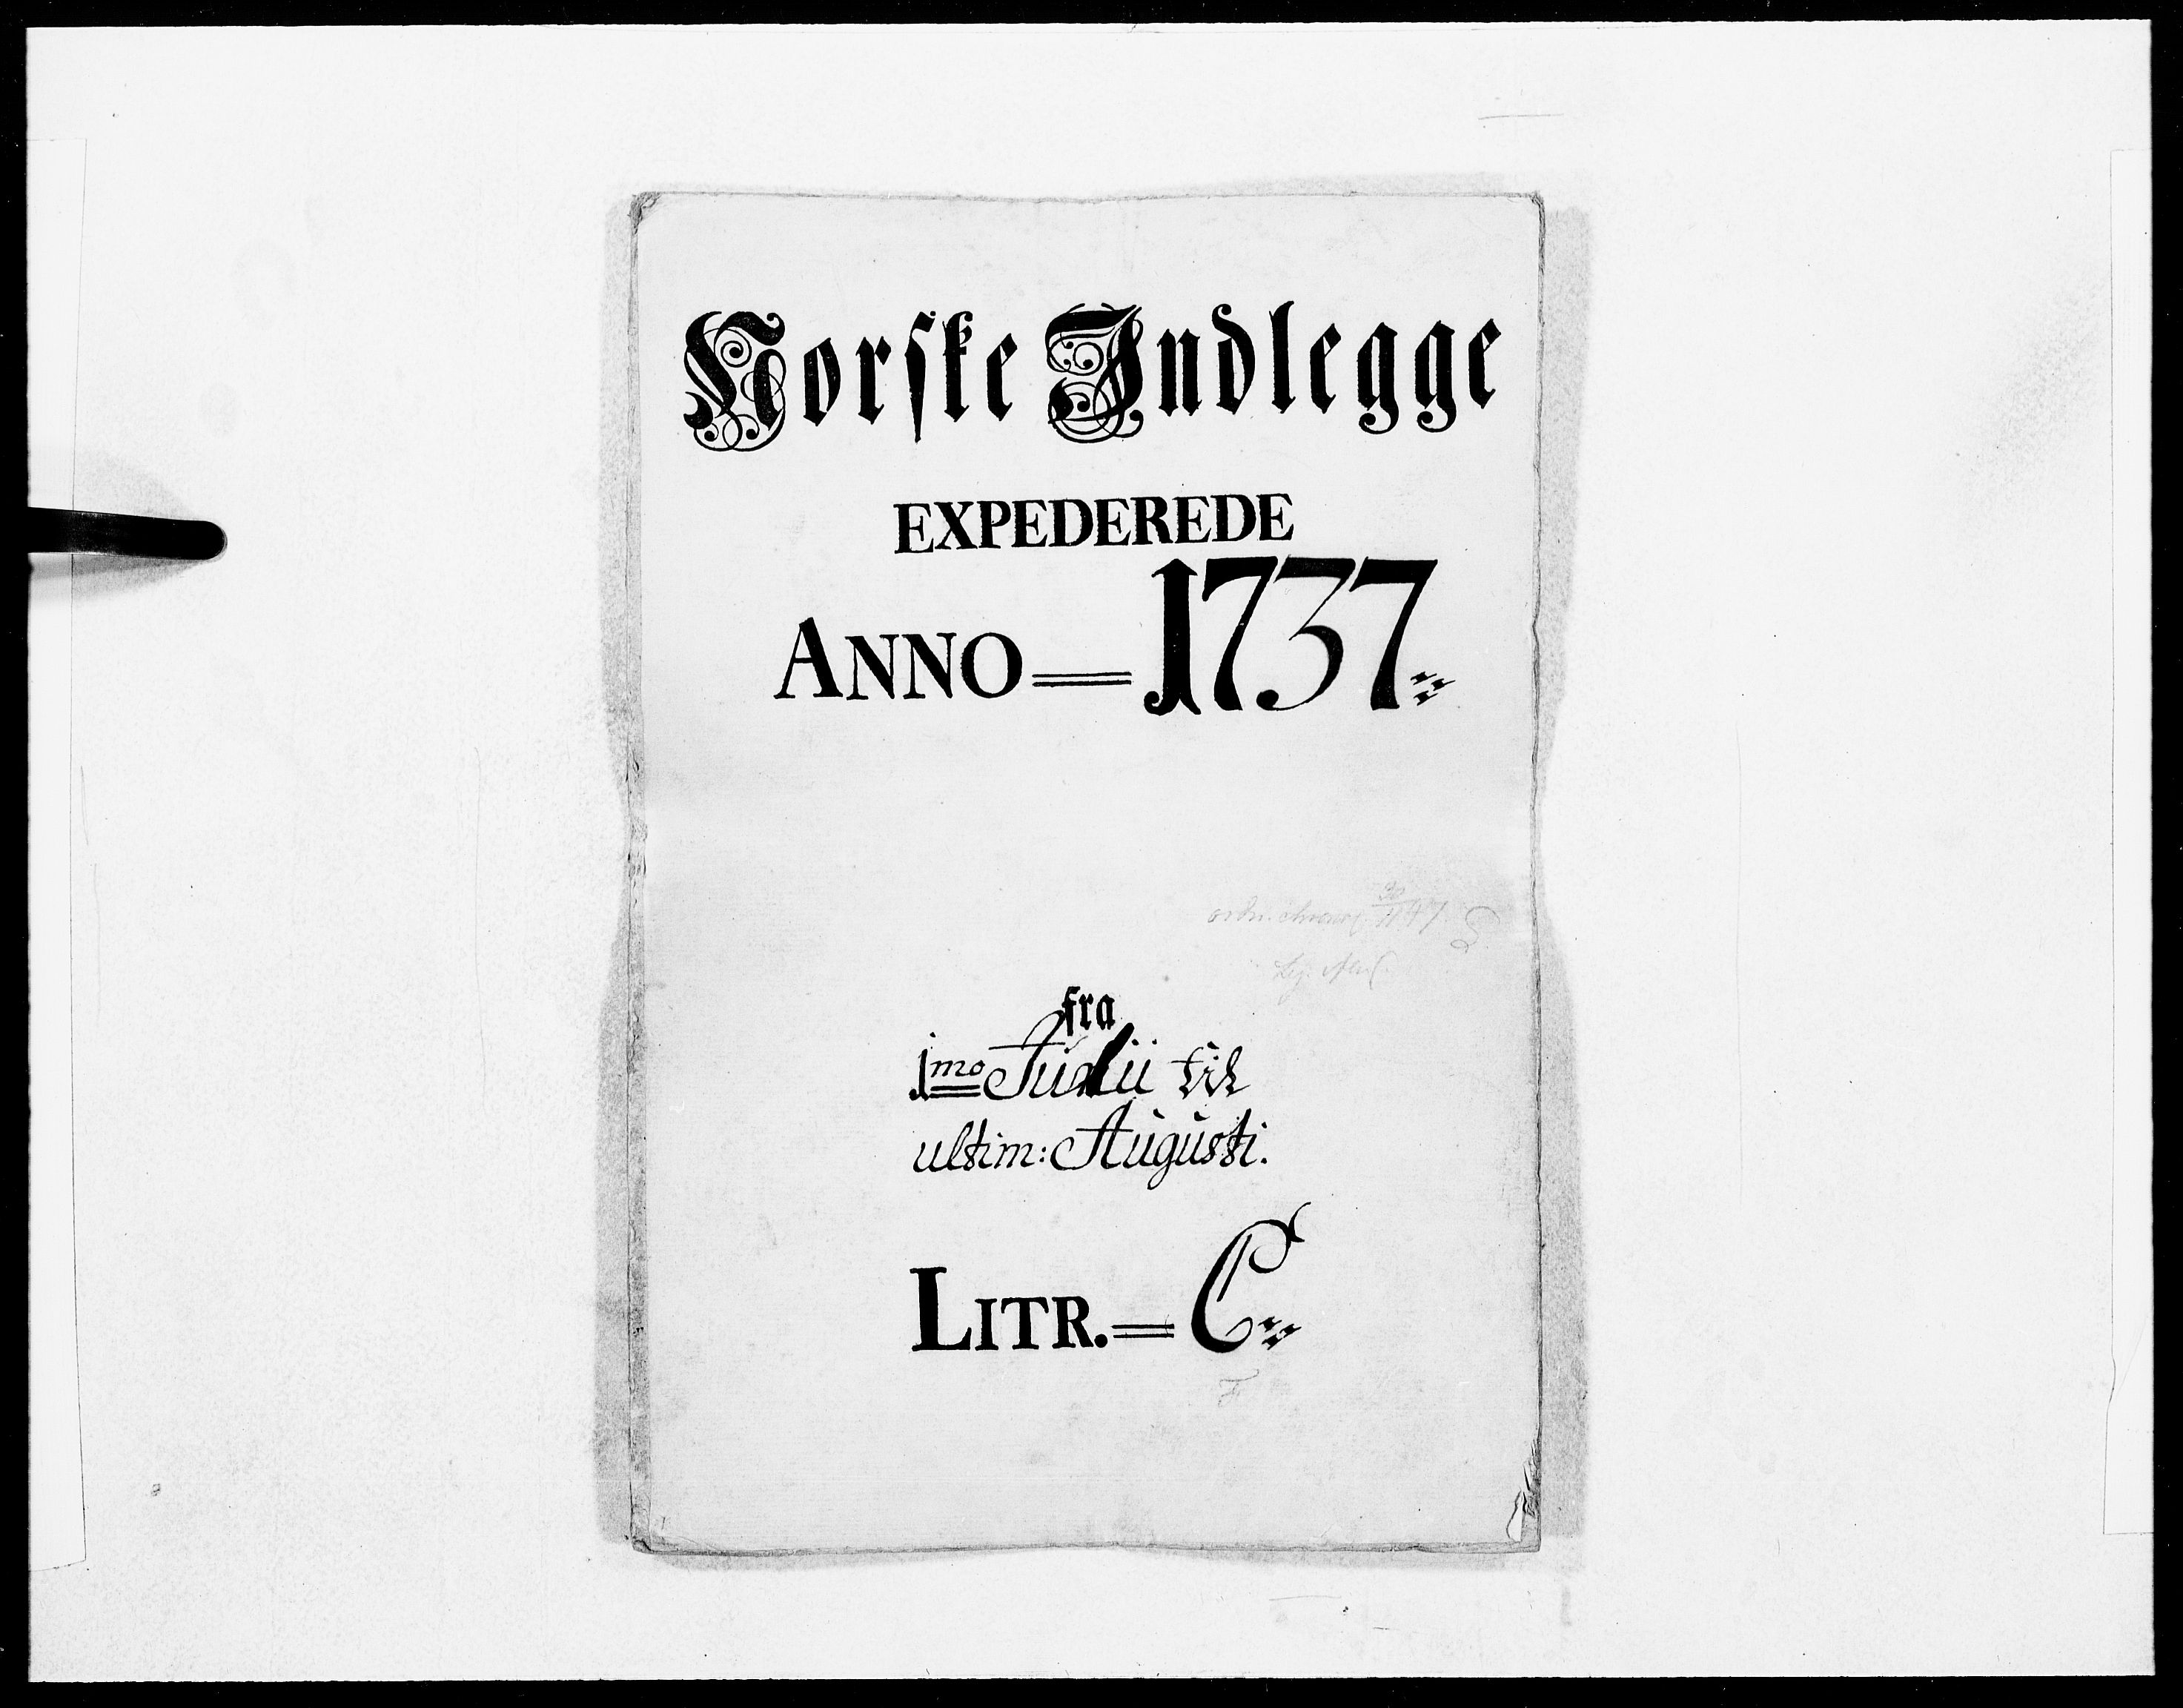 Norske Indlegge
EXPEDEREDE
ANNO = 1737
30/11 47
fra
1mo Julii til
ultim: Augusti.
LITR. = C